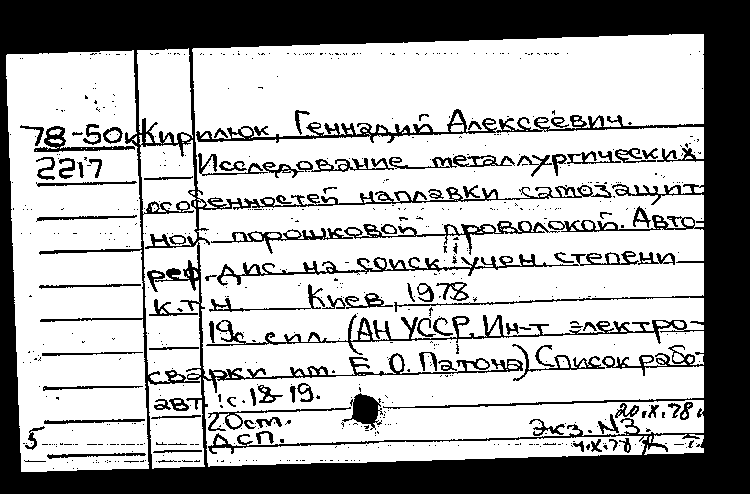 78-50к Кирилюк, Геннадий Алексеевич.
2217 Исследование металлургических
особенностей наплавки самозащит-
ной порошковой проволокой. Авто-
реф. дис. на соиск. учен. степени
к.т.н. Киев, 1978.
19с. с ил. (АН УССР. Ин-т электро-
сварки им. Е.О. Патона) Список работ
авт.: с. 18-19.
20см.
20.X.78
5 ДСП. Экз. N3.
4.X.78